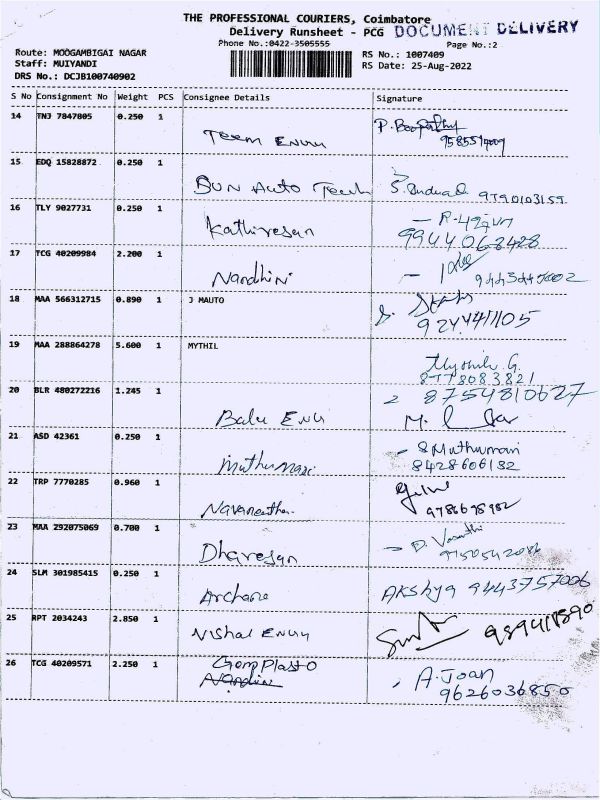 THE PROFESSIONAL COURIERS, Coimbatore
Delivery Runsheet - PCG DOCUMENT DELIVERY
Phone No.:0422-3505555 Page No.:2
Route: MOOGAMBIGAI NAGAR RS No.: 1007409
Staff: MUIYANDI RS Date: 25-Aug-2022
DRS No.: DCJB100740902
S No Consignment No Weight PCS Consignee Details Signature
14 TNJ 7847805 0.250 1
Teem Enuu P. Boopathy
15 EDQ 15828872 0.250 1
BUN Auto Tech 9790103159
16 TLY 9027731 0.250 1
Kathiresan
9944063428
17 TCG 40209984 2.200 1
Nandhini
18 MAA 566312715 0.890 1 J MAUTO
9244411105
19 MAA 288864278 5.600 1 MYTHIL
Mythili G.
8778083821
20 BLR 480272216 1.245 1 8754810627
Balu Enu
21 ASD 42361 0.250 1
Muthumari S Muthumari
8428606132
22 TRP 7770285 0.960 1
Navaneetha 9786698982
23 MAA 292075069 0.700 1
Dharesan
24 SLM 301985415 0.250 1
Archana Akshya 9443757006
25 RPT 2034243 2.850 1
Vishal Enuu
26 TCG 40209571 2.250 1 Gemplasto
Nandini A. Joan
9626036850